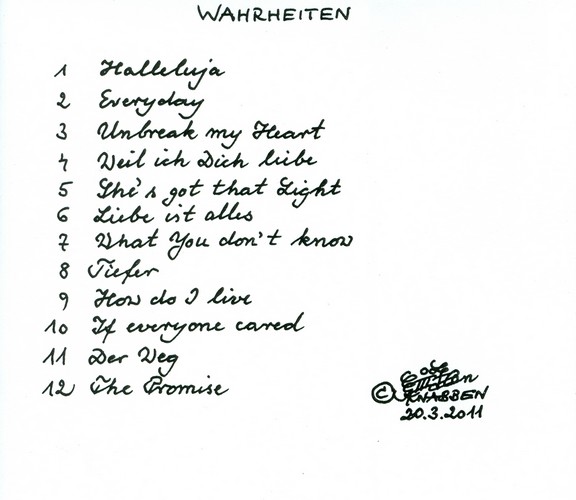 WAHRHEITEN
1 Halleluja
2 Everyday
3 Unbreak my Heart
4 Weil ich Dich liebe
5 She's got that Light
6 Liebe ist alles
7 What You don't know
8 Tiefer
9 How do I live
10 If everyone cared
11 Der Weg
12 The Promise
©
KNABBEN
20.3.2011